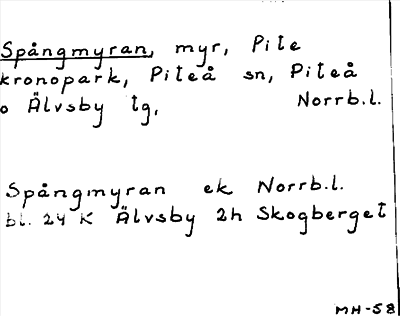 Spångmyran, myr, Pite
kronopark, Piteå sn, Piteå
o Älvsby tg, Norrb.l.
Spångmyran ek Norrb.l.
bl. 24 K Älvsby 2h Skogberget
MH-58